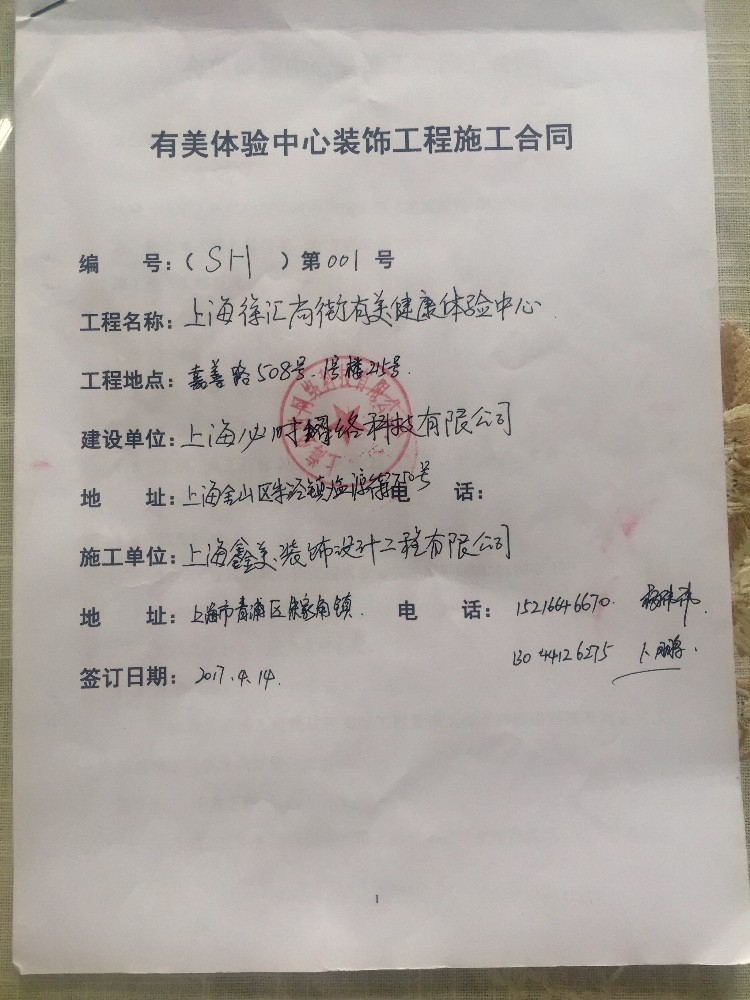 有美体验中心装饰工程施工合同
编 号：（ SH ）第001号
工程名称：上海徐汇尚街有美健康体验中心
工程地点：嘉善路508号.1号楼215号.
建设单位：上海必时络科技有限公司
地 址：上海金山区朱泾镇 750号 电 话：
施工单位：上海鑫美装饰设计工程有限公司
地 址：上海市青浦区朱家角镇. 电 话：15216646670.
13044126275 卜鹏.
签订日期：2017.4.14.
1